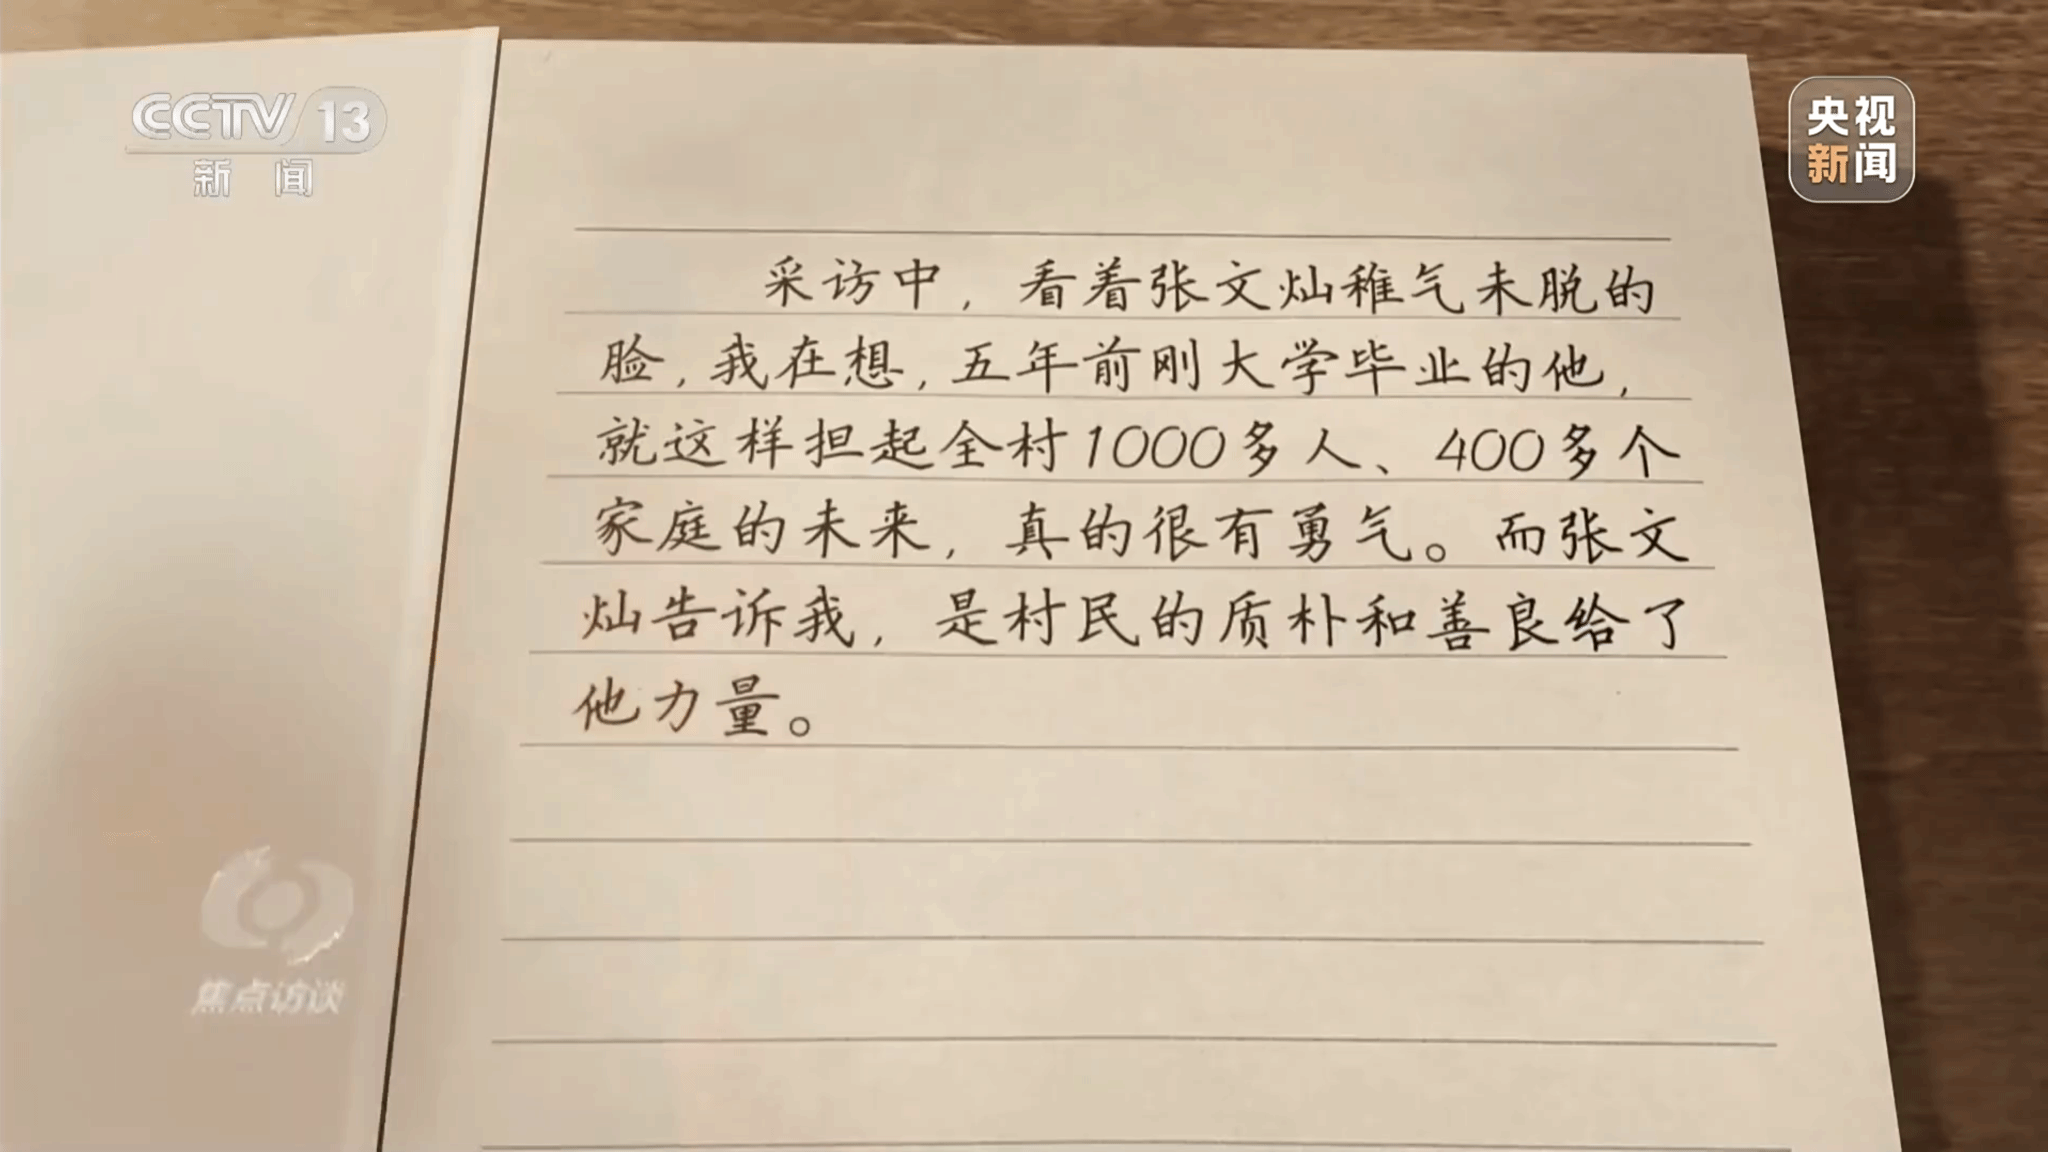 CCTV 13
新闻
央视
新闻
采访中，看着张文灿稚气未脱的
脸，我在想，五年前刚大学毕业的他，
就这样担起全村1000多人、400多个
家庭的未来，真的很有勇气。而张文
灿告诉我，是村民的质朴和善良给了
他力量。
焦点访谈